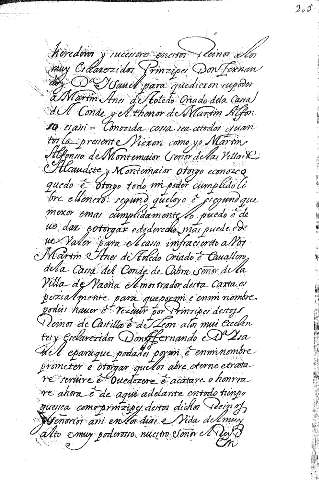 herederos y sucesores en estos Reinos a los
muy Esclarecidos Principes Don Fernan
do y Dª Ysavel para que dieron su poder
a Martin Anes de toledo Criado dela Casa
del Conde, y Athenor de Martin Alfon
so es asi = Conozida cosa sea atodos quan
tos la presente vieren como yo Martin
Alfonso de Montemaior Señor delas Villas de
Alcaudete y Montemaior otorgo conozco
quedo é otorgo todo mi poder cumplido li
bre é llenero, segund que lo yo é segund que
mexor é mas cumplidamente lo puedo é de
vo dar é otorgar é de derecho mas puede é de
ve Valer para el caso infraescrito a Vos
Martin Anes de toledo Criado é Cavallero
dela Casa del Conde de Cabra Señor dela
Villa de Vaena Amostrador desta Carta es
pezialmente para que por mi é en mi nombre
podais hazer é rezevir por Principes destos
Reinos de Castilla é de Leon alos mui Excelen
tes y Esclarezidos Don Fernando é Dª Ysa
vel é para que podades por mi é en mi nombre
prometer é otorgar que los abre é terne é trata
re servire é Ovedezere é acatare é honrra
re ahora é de aqui adelante en todo tiempo
que sea como principes destos dichos Reinos
y Señorios asi en los dias é Vida del muy
alto é muy poderoso, nuestro Señor el Rey D.
En